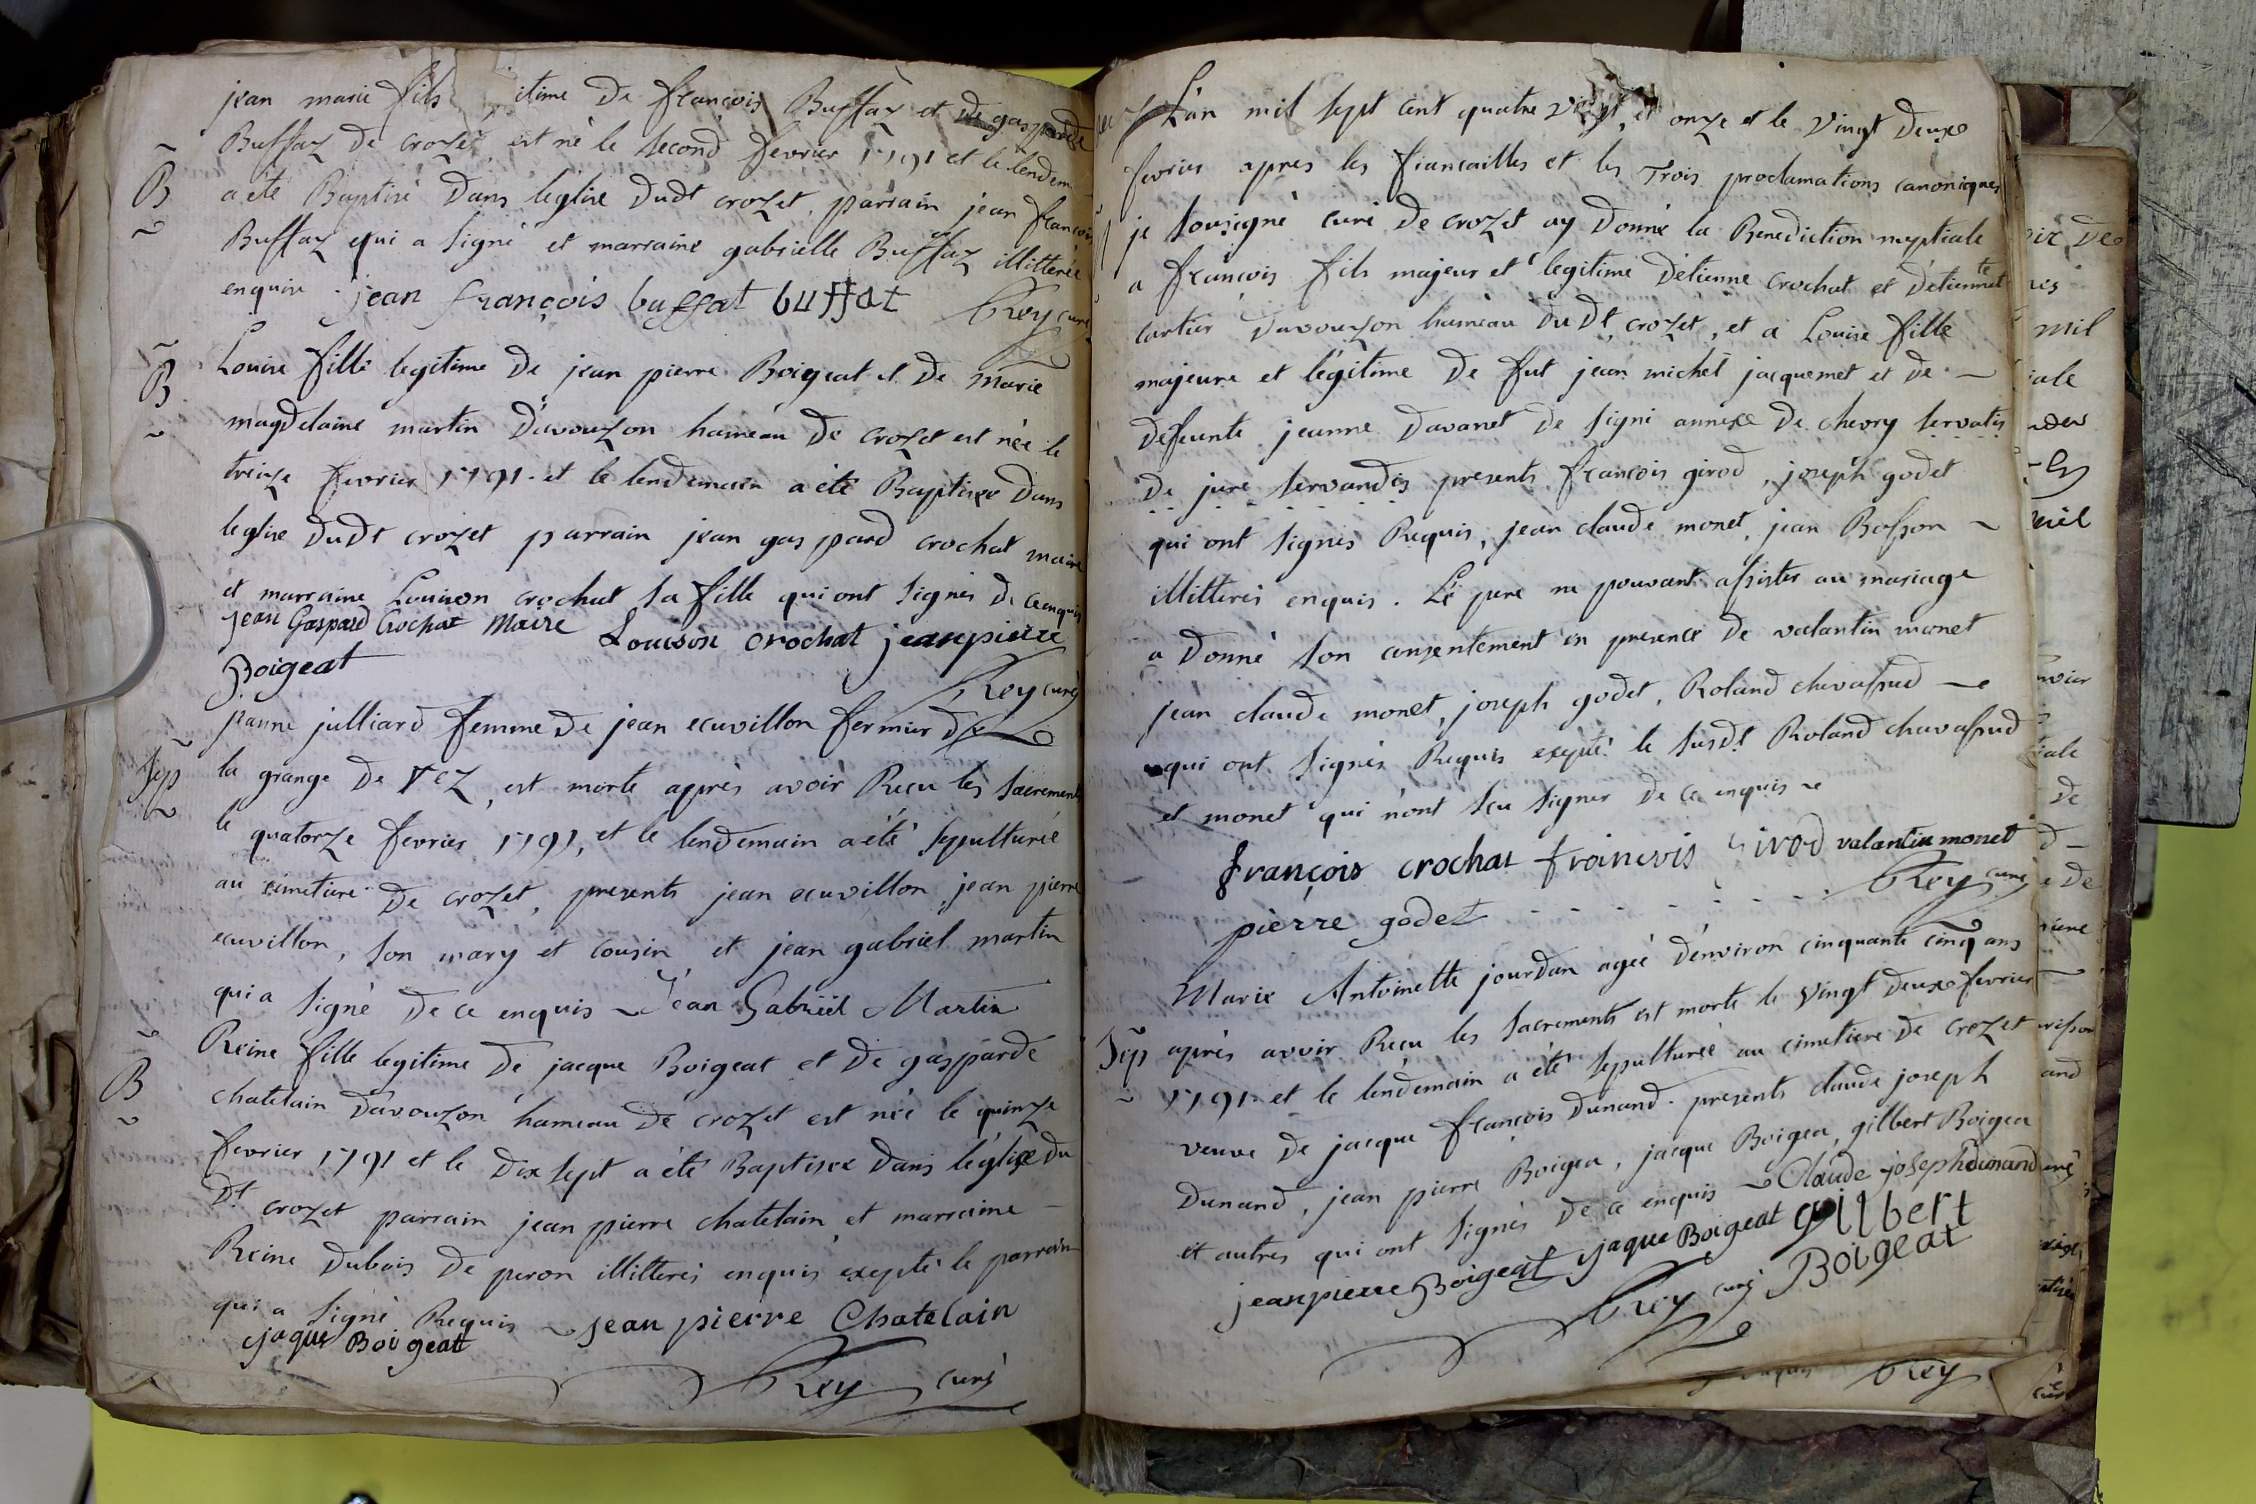 jean marie fils itime De francois Buffaz et De gasparde
Buffaz De crozet, est né le second fevrier 1791 et le lendem
B
a été Baptisé Dans léglise DuDt crozet, parrain jean francois
Buffaz qui a signé et marraine gabrielle Buffaz illitterée
enquise. jean françois buffat buffat Rey curé
B
Louise fille legitime De jean pierre Boigeat et De marie
magdelaine martin D'avouzon hameau De crozet est née le
treize fevrier 1791. et le lendemain a été Baptisée Dans
leglise DuDt crozet parrain jean gaspard crochat maire
et marraine Louison crochat sa fille qui ont signés De ce enquis
jean Gaspard Crochat Maire Louison crochat jeanpierre
Boigeat
Rey curé
jeanne julliard femme De jean ecuvillon fermier De
Sep
la grange De tez, est morte après avoir Recu les sacrements
le quatorze fevrier 1791, et le lendemain a été sepulturée
au cimetiere De crozet, presents jean ecuvillon, jean pierre
ecuvillon, son mary et cousin et jean gabriel martin
qui a signé De ce enquis ~ Jean Gabriel Martin
Reine fille legitime De jacque Boigeat et De gasparde
B
chatelain D'avouzon hameau De crozet est née le quinze
fevrier 1791 et le Dix sept a été Baptisée Dans léglise Du
Dt crozet parrain jean pierre chatelain et marraine
Reine Dubois De peron illitterés enquis exepté le parrain
qui a signé Requis ~ jean pierre Chatelain
jaque Boigeat
Rey curé
L'an mil sept cent quatre vingt et onze et le vingt Deuxe
fevrier apres les fiancailles et les Trois proclamations canoniques
je sousigné curé De crozet ay Donné la Benediction nuptiale
a francois fils majeur et legitime D'etienne crochat et D'etiennette
cartier Davouzon hameau DuDt crozet, et a Louise fille
majeure et légitime De fut jean michel jacquemet et De
defeunte jeanne Davanet De signi annexe De chevry servatis
De jure servandis presents francois girod, joseph godet
qui ont signés Requis, jean claude monet, jean Bosson ~
illitterés enquis. Le pere ne pouvant assister au mariage
a Donné son consentement en presence De valantin monet
jean claude monet, joseph godet, Roland chevassud
qui ont signés Requis exepté le susdt Roland chavassud
et monet qui n'ont sçu signer De ce enquis
françois crochat francois Girod valantin monet
Rey curé
pierre godet
Marie Antoinette jourdan ageé D'environ cinquante cinq ans
Sep
après avoir Recu les sacrements est morte le vingt Deuxe fevrier
1791 et le lendemain a été sepulturée au cimetiere De crozet
veuve De jacque francois Dunand. presents claude joseph
Dunand, jean pierre Boigea, jacque Boigea, gilbert Boigea
et autres qui ont signés De ce enquis ~ Claude joseph Dunand
jeanpierre Boigeat jaque Boigeat gilbert
Boigeat
Rey curé
Rey